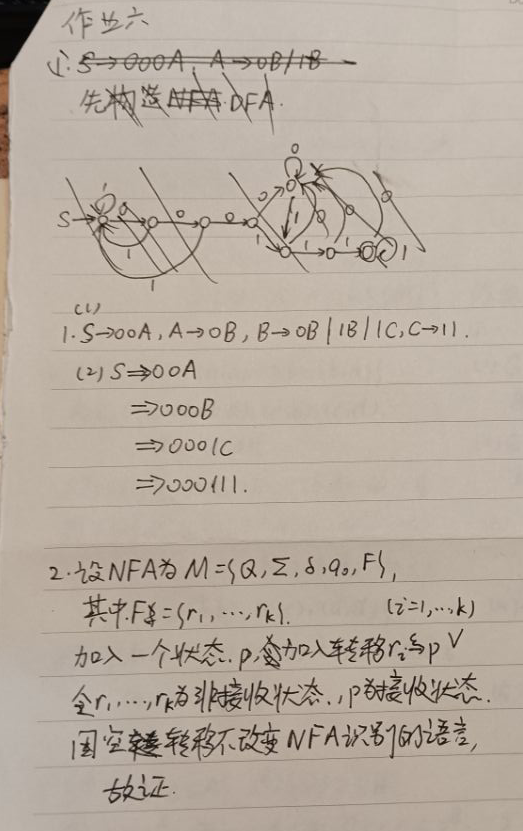 作业六
1. S→000A, A→0B/1B
先构造NFA DFA.
S 1 0 0 0 0 0 1 1 0 0 0 1 1 1 1 1
(1)
1. S→00A, A→0B, B→0B | 1B | 1C, C→11.
(2) S⇒00A
⇒000B
⇒0001C
⇒000111.
2. 设NFA为 M={Q, Σ, δ, q₀, F},
其中F={r₁, ..., rₖ}. (i=1,...,k)
加入一个状态 p, 加入转移 rᵢ p
令r₁, ..., rₖ为非接收状态, p为接收状态.
因空转移不改变NFA识别的语言,
故证.